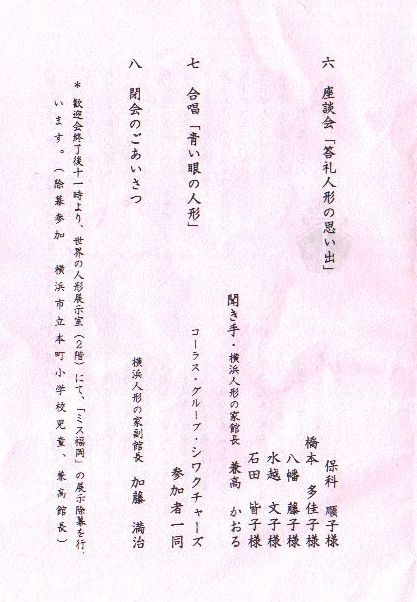 六　座談会「答礼人形の思い出」
保科　順子様
橋本　多佳子様
八幡　藤子様
水越　文子様
石田　皆子様
聞き手・横浜人形の家館長　兼高　かおる
七　合唱「青い眼の人形」
コーラス・グループ・シワクチャーズ
参加者一同
八　閉会のごあいさつ
横浜人形の家副館長　加藤　満治
＊　歓迎会終了後十一時より、世界の人形展示室（２階）にて、「ミス福岡」の展示除幕を行
います。（除幕参加　横浜市立本町小学校児童、兼高館長）